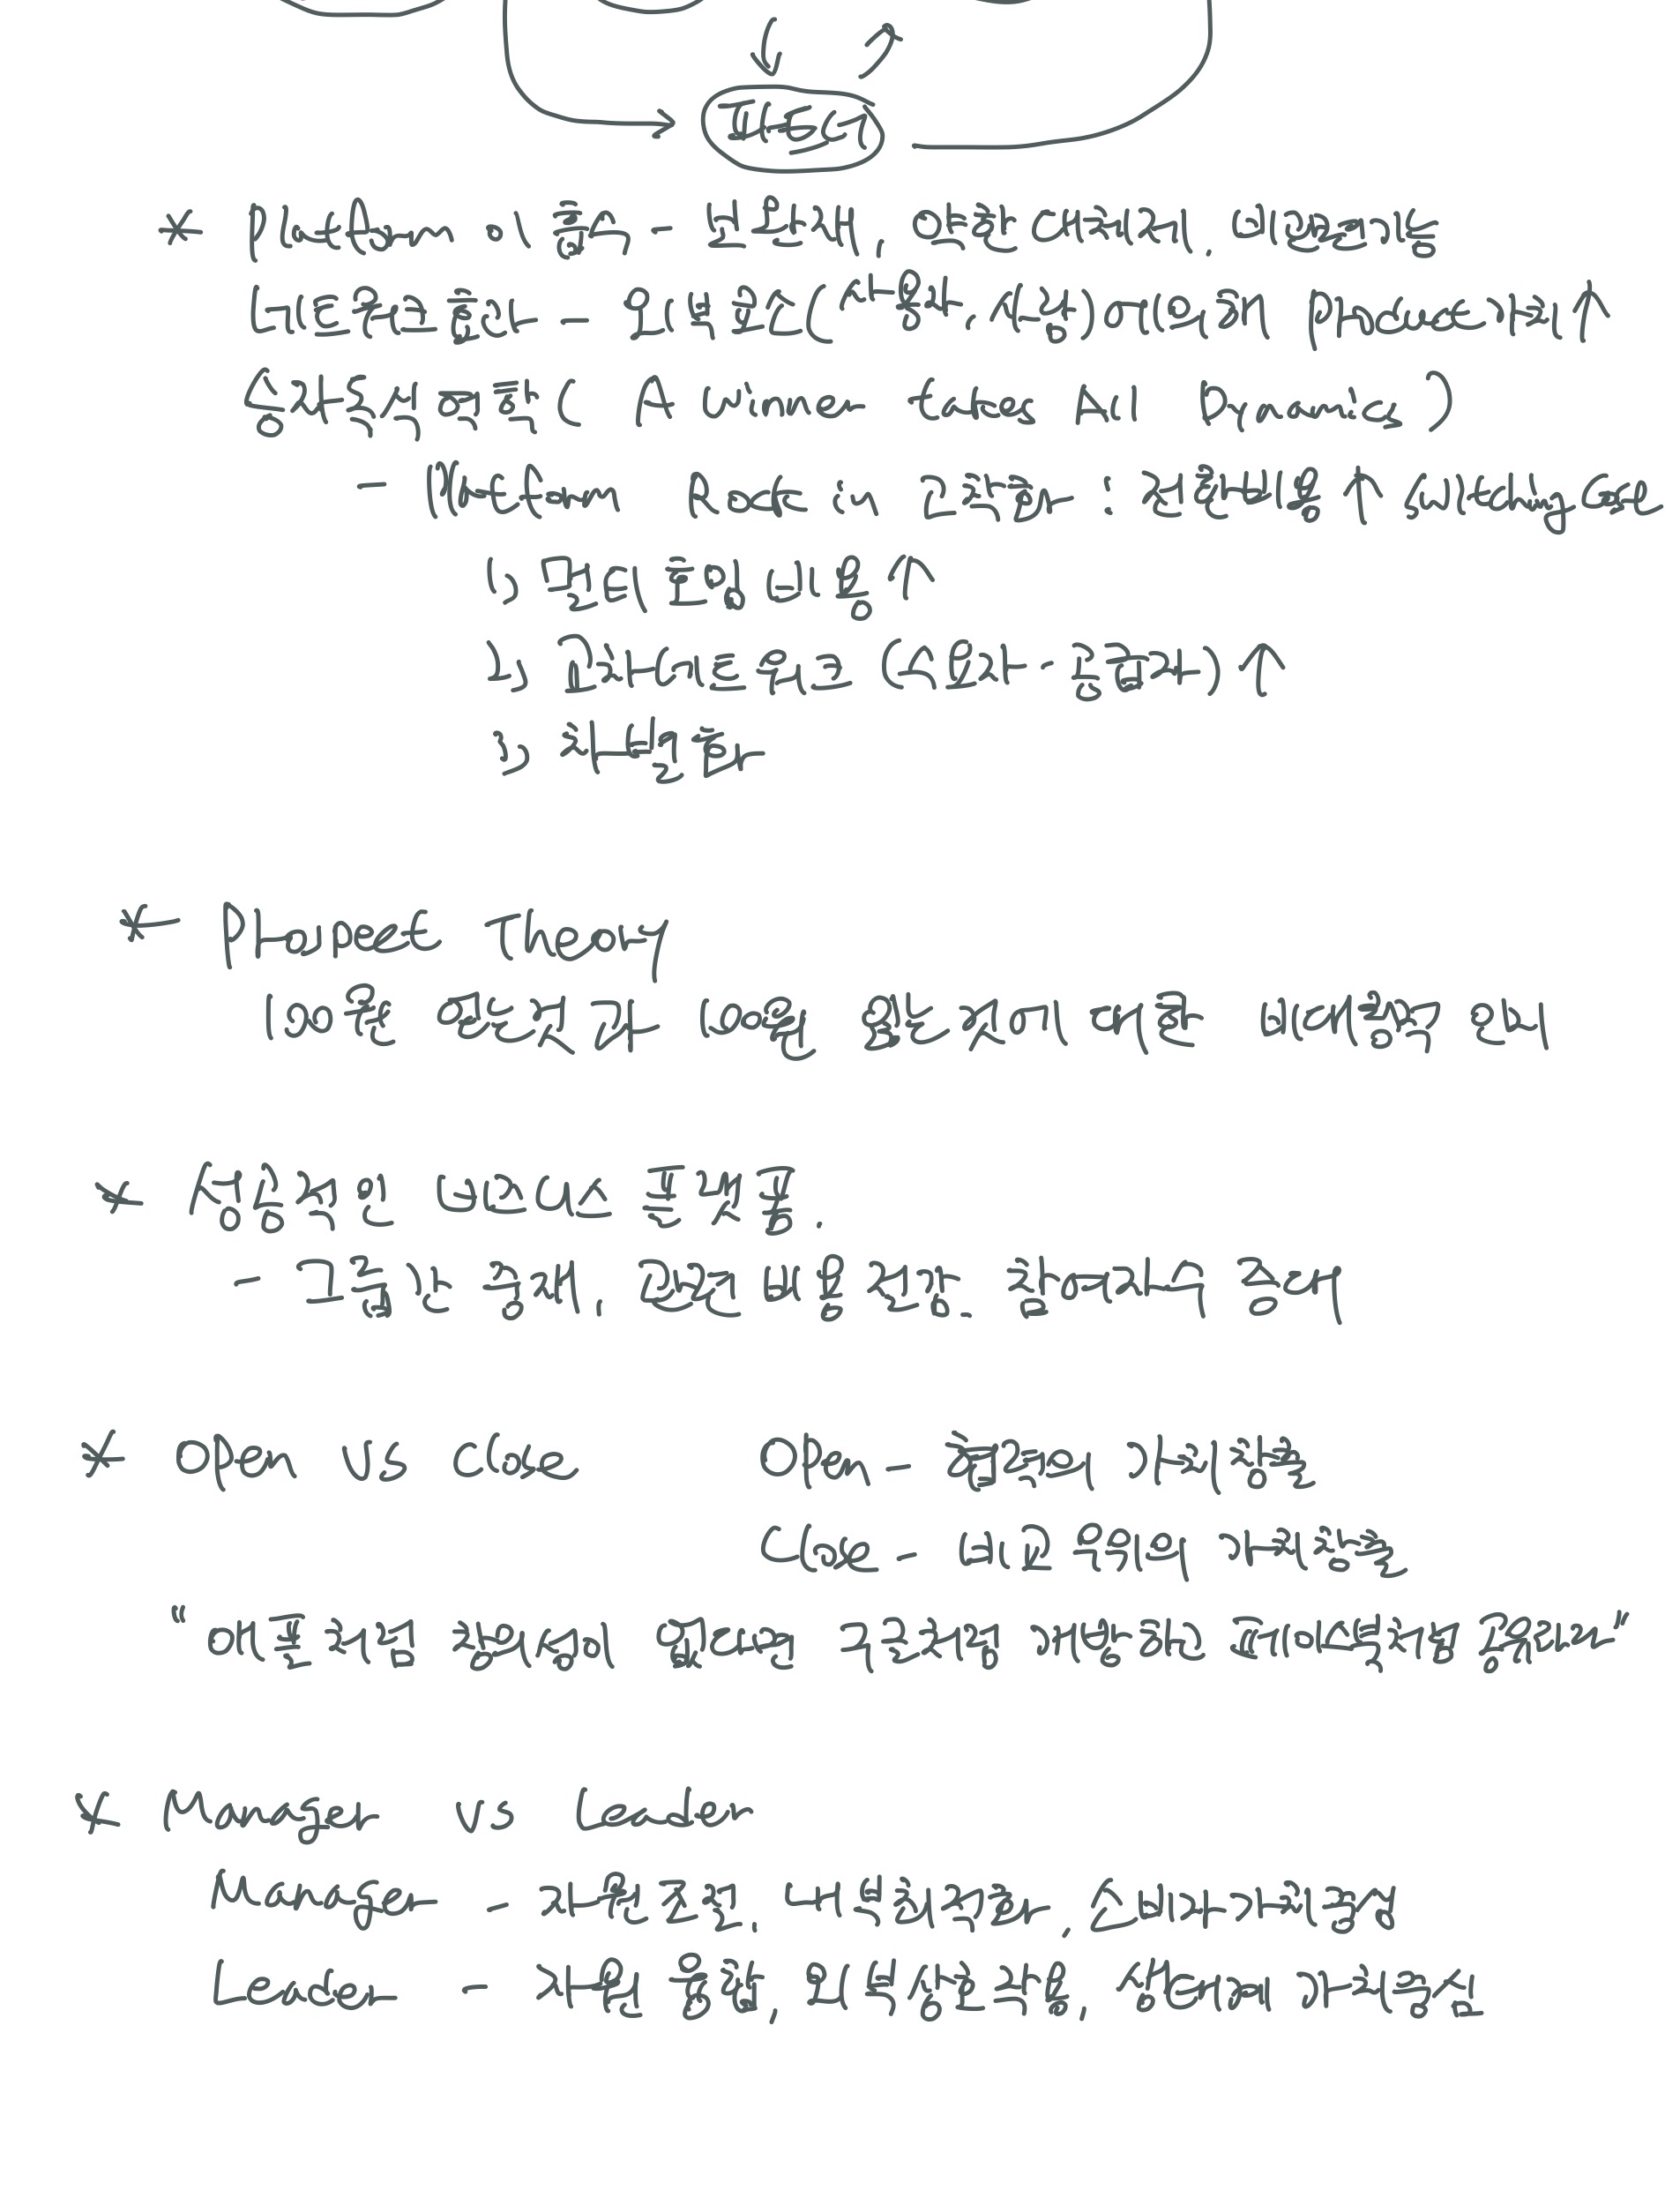 파트너
* Platform 이 출속 - 보완재, 약한 대체재, 비관련기능
네트웤크효과 - 외부요인(사용자, 시장)에 의해 Product가치↑
승자독식 역학( A Winner takes All Dynamics )
- Platform Rock in 고착화 : 전환비용↑ Switching Cost
1) 멀티호밍 비용↑
2) 교차네트워크 (수요자-공급자)↑
3) 차별화
* Prospect Theory
100원 얻는것과 100원 잃는것에 대한 비대칭적 인식
* 성공적인 비즈니스 플랫폼.
- 그룹간 중재, 관련 비용 절감. 참여자수 증대
* Open vs Close Open - 협력의 가치창출
Close - 비교우위의 가치창출
"애플처럼 창의성이 없다면 구글처럼 개방하고 페이스북처럼 공유하라"
* Manager vs Leader
Manager - 자원조정, 내부최적화, 소비자가치중심
Leader - 자원 융합, 외부 상호작용, 생태계 가치중심